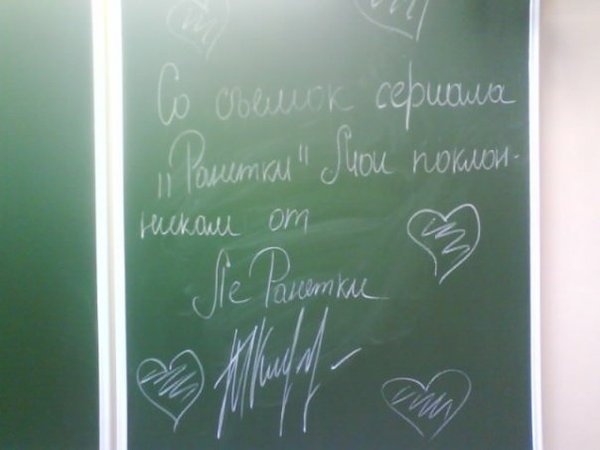 Со съемок сериала
„Ранетки" Мои поклон-
никам от
Ле Ранетки